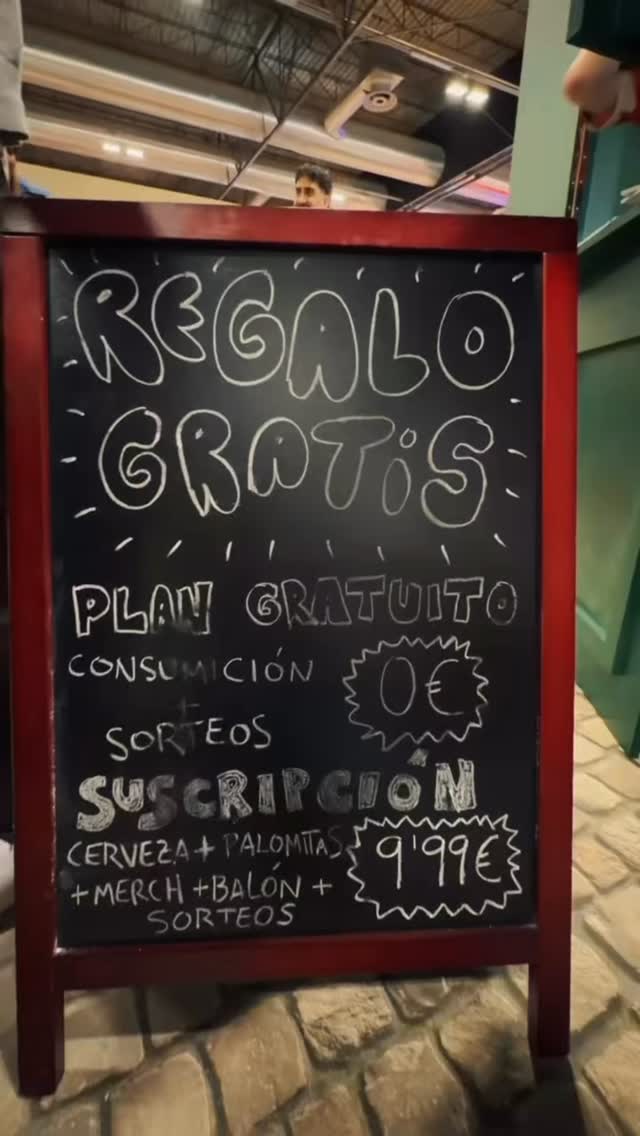 REGALO
GRATIS
PLAN GRATUITO
CONSUMICIÓN
+
SORTEOS
0€
SUSCRIPCIÓN
CERVEZA + PALOMITAS
+ MERCH + BALÓN +
SORTEOS
9'99€